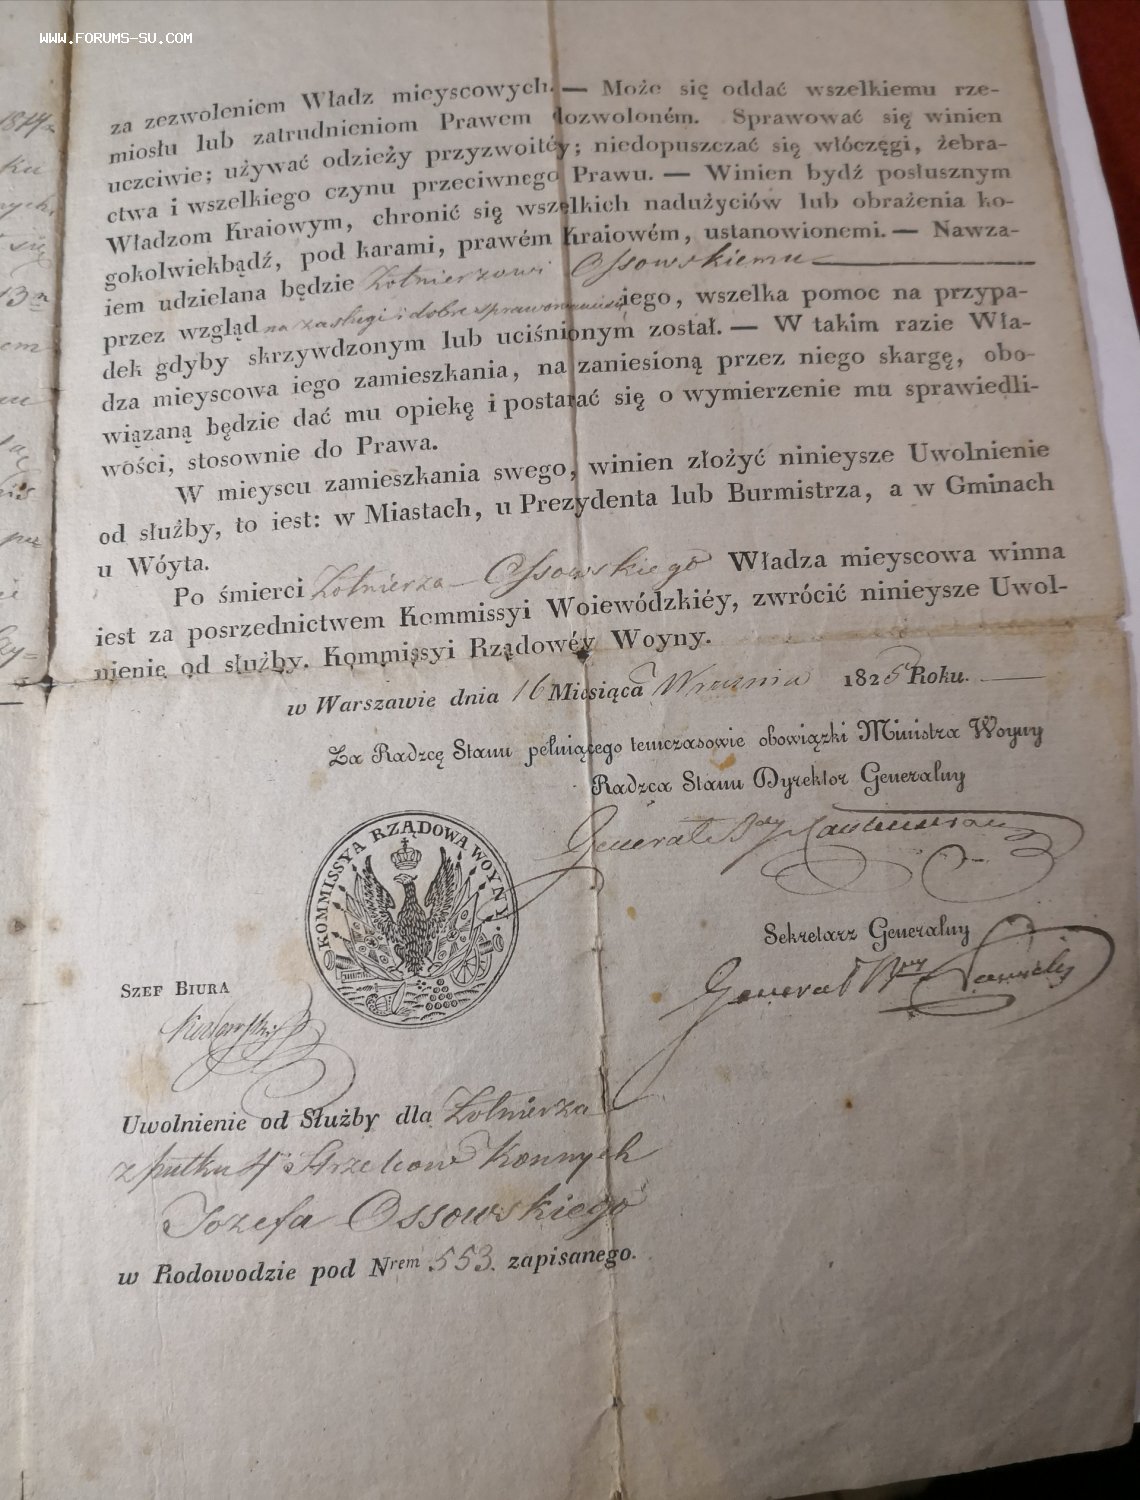 WWW.FORUMS-SU.COM
za zezwoleniem Władz mieyscowych. — Może się oddać wszelkiemu rze-
miosłu lub zatrudnieniom Prawem dozwoloném. Sprawować się winien
uczciwie; używać odzieży przyzwoitéy; niedopuszczać się włóczęgi, żebra-
ctwa i wszelkiego czynu przeciwnego Prawu. — Winien bydź posłusznym
Władzom Kraiowym, chronić się wszelkich nadużyciów lub obrażenia ko-
gokolwiekbądź, pod karami, prawém Kraiowém, ustanowionemi. — Nawza-
iem udzielana będzie Żołnierzowi Ossowskiemu
przez wzgląd na zasługi i dobre sprawowanie się iego, wszelka pomoc na przypa-
dek gdyby skrzywdzonym lub uciśnionym został. — W takim razie Wła-
dza mieyscowa iego zamieszkania, na zaniesioną przez niego skargę, obo-
wiązaną będzie dać mu opiekę i postarać się o wymierzenie mu sprawiedli-
wości, stosownie do Prawa.
W mieyscu zamieszkania swego, winien złożyć ninieysze Uwolnienie
od służby, to iest: w Miastach, u Prezydenta lub Burmistrza, a w Gminach
u Wóyta.
Po śmierci Żołnierza Ossowskiego Władza mieyscowa winna
iest za posrzednictwem Kommissyi Woiewódzkiéy, zwrócić ninieysze Uwol-
nienie od służby, Kommissyi Rządowéy Woyny.
w Warszawie dnia 16 Miesiąca Wrzesnia 1825 Roku.
Za Radzcę Stanu pełniącego temczasowie obowiązki Ministra Woyny
Radzca Stanu Dyrektor Generalny
Generał Bdy
KOMMISSYA RZĄDOWA WOYNY
Sekretarz Generalny
Generał Bry
SZEF BIURA
Uwolnienie od Służby dla Żołnierza
z pułku 4 Strzelców Konnych
Józefa Ossowskiego
w Rodowodzie pod Nrem 553. zapisanego.